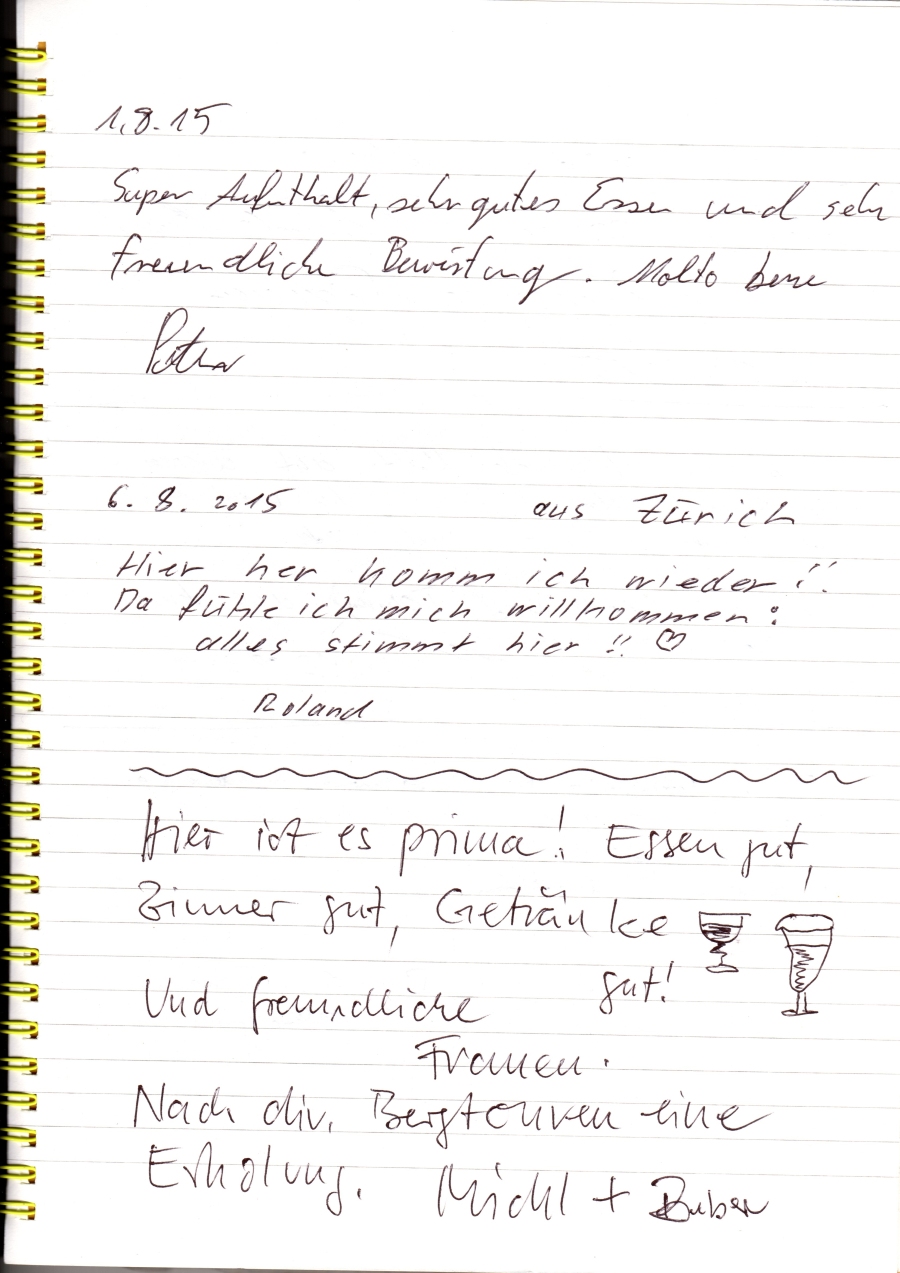 1.8.15
Super Aufenthalt, sehr gutes Essen und sehr
freundliche Bewirtung. Molto bene
Peter
6. 8. 2015 aus Zürich
Hier her komm ich wieder !!
Da fühle ich mich willkommen :
alles stimmt hier !! ♡
Roland
Hier ist es prima! Essen gut,
Zimmer gut, Getränke
gut!
Und freundliche
Frauen.
Nach div. Bergtouren eine
Erholung. Michl + Buben